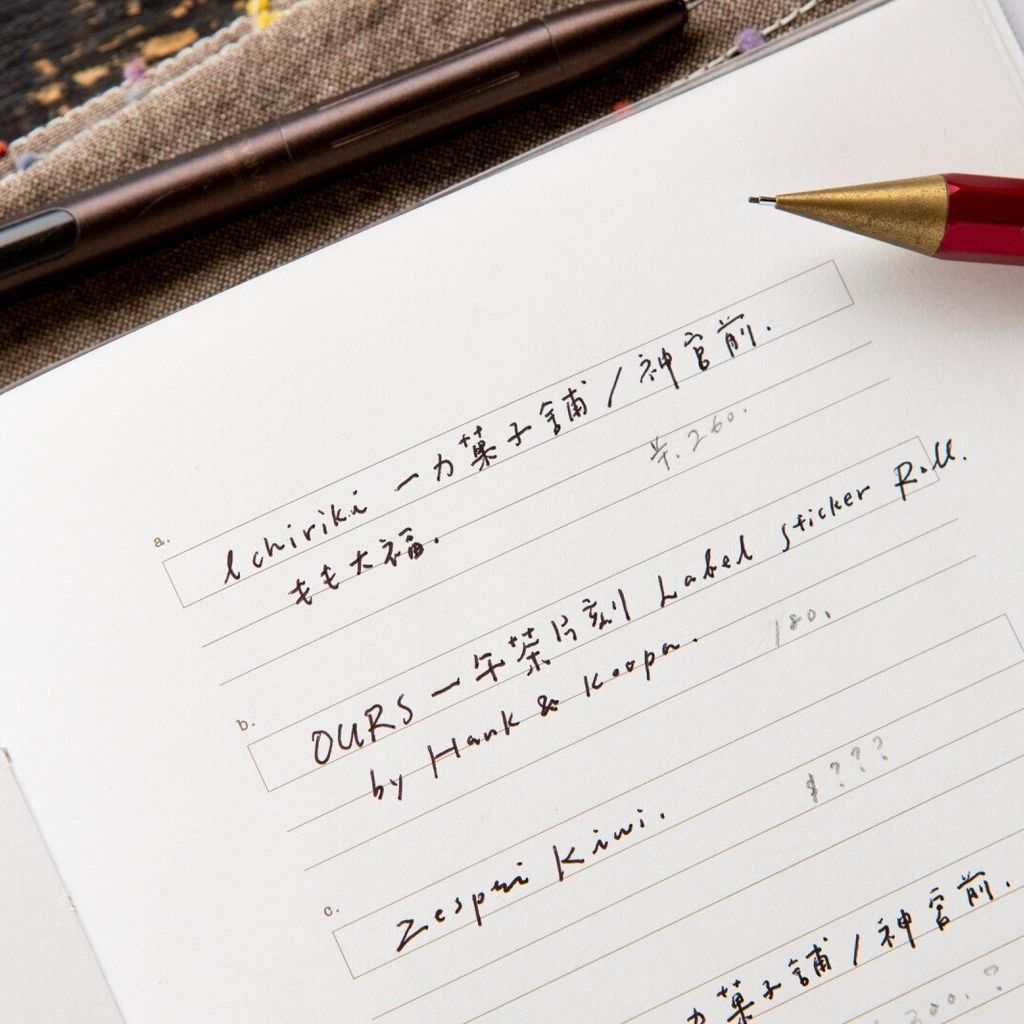 a.
Ichiriki 一力菓子舗/神宮前.
羊.260.
もも大福.
b.
OURS 一午茶片刻 Label sticker Roll.
180.
by Hank & Koopa.
c.
$???
Zespri Kiwi.
力菓子舗/神宮前.
300.?